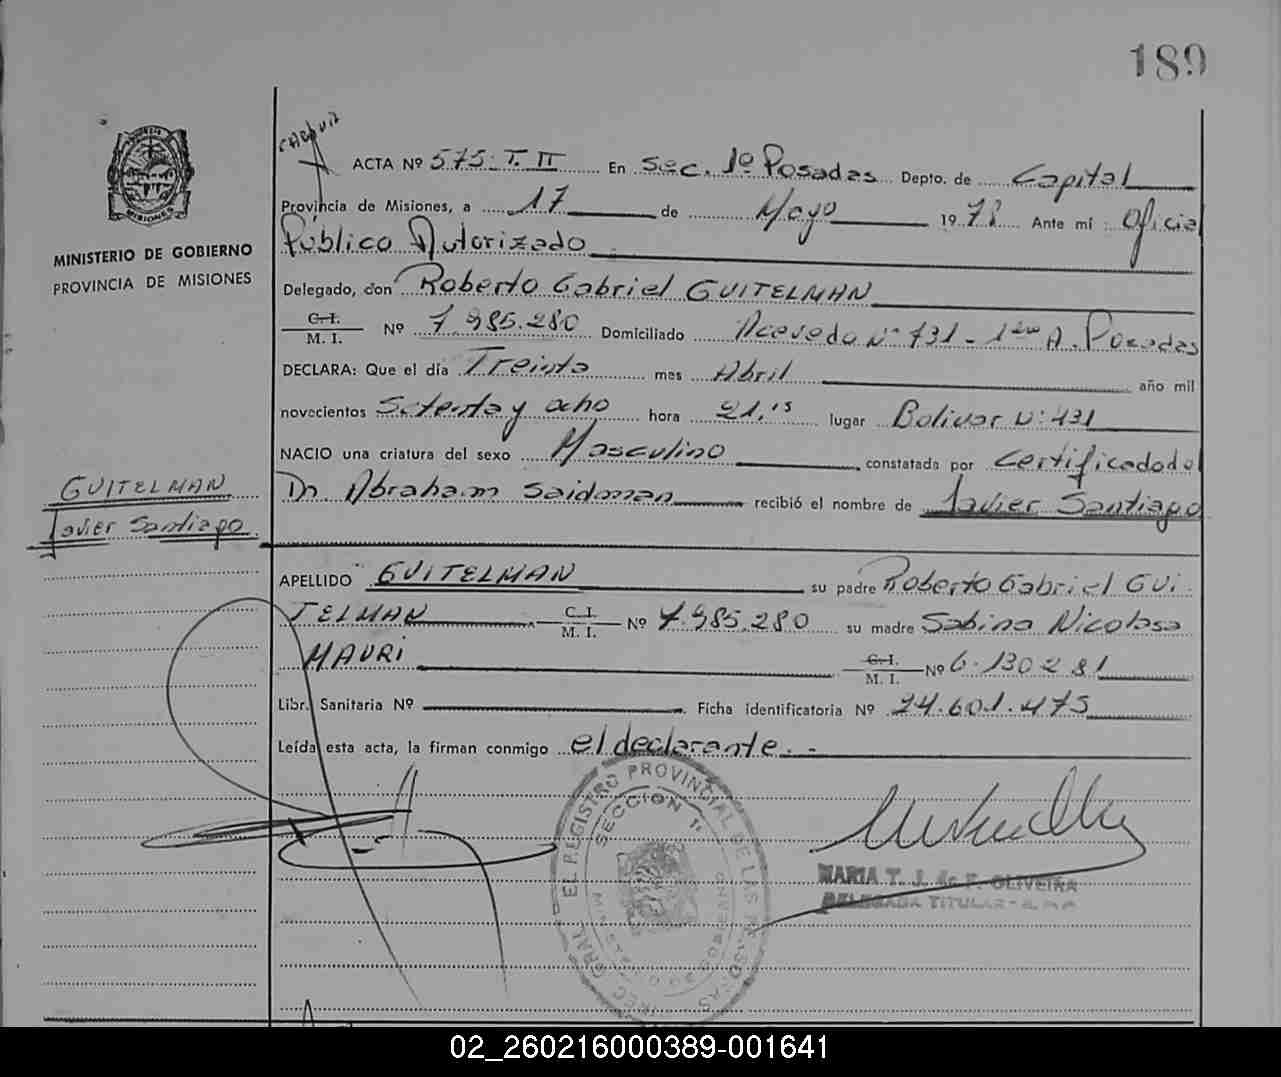 189
ACTA Nº 575. T. II En Sec. 1º Posadas Depto. de Capital
Provincia de Misiones, a 17 de Mayo 1978 Ante mí: Oficial
Público Autorizado
Delegado, don Roberto Gabriel GUITELMAN
C. I.
M. I. Nº 7.985.280 Domiciliado Acevedo Nº 731 - A. Posadas
DECLARA: Que el día Treinta mes Abril año mil
novecientos Setenta y ocho hora 21,15 lugar Bolivar Nº 431
NACIO una criatura del sexo Masculino constatada por Certificado del
Dr. Abraham Saidman recibió el nombre de Javier Santiago
APELLIDO GUITELMAN su padre Roberto Gabriel GUI
TELMAN C. I.
M. I. Nº 7.985.280 su madre Sabina Nicolasa
MAURI C. I.
M. I. Nº 6.130281
Libr. Sanitaria Nº Ficha identificatoria Nº 24.601.475
Leída esta acta, la firman conmigo el declarante. -
MINISTERIO DE GOBIERNO
PROVINCIA DE MISIONES
GUITELMAN
Javier Santiago
REGISTRO PROVINCIAL DE LAS PERSONAS
SECCION 1ª
MARIA T. J. de F. OLIVEIRA
DELEGADA TITULAR
02_260216000389-001641